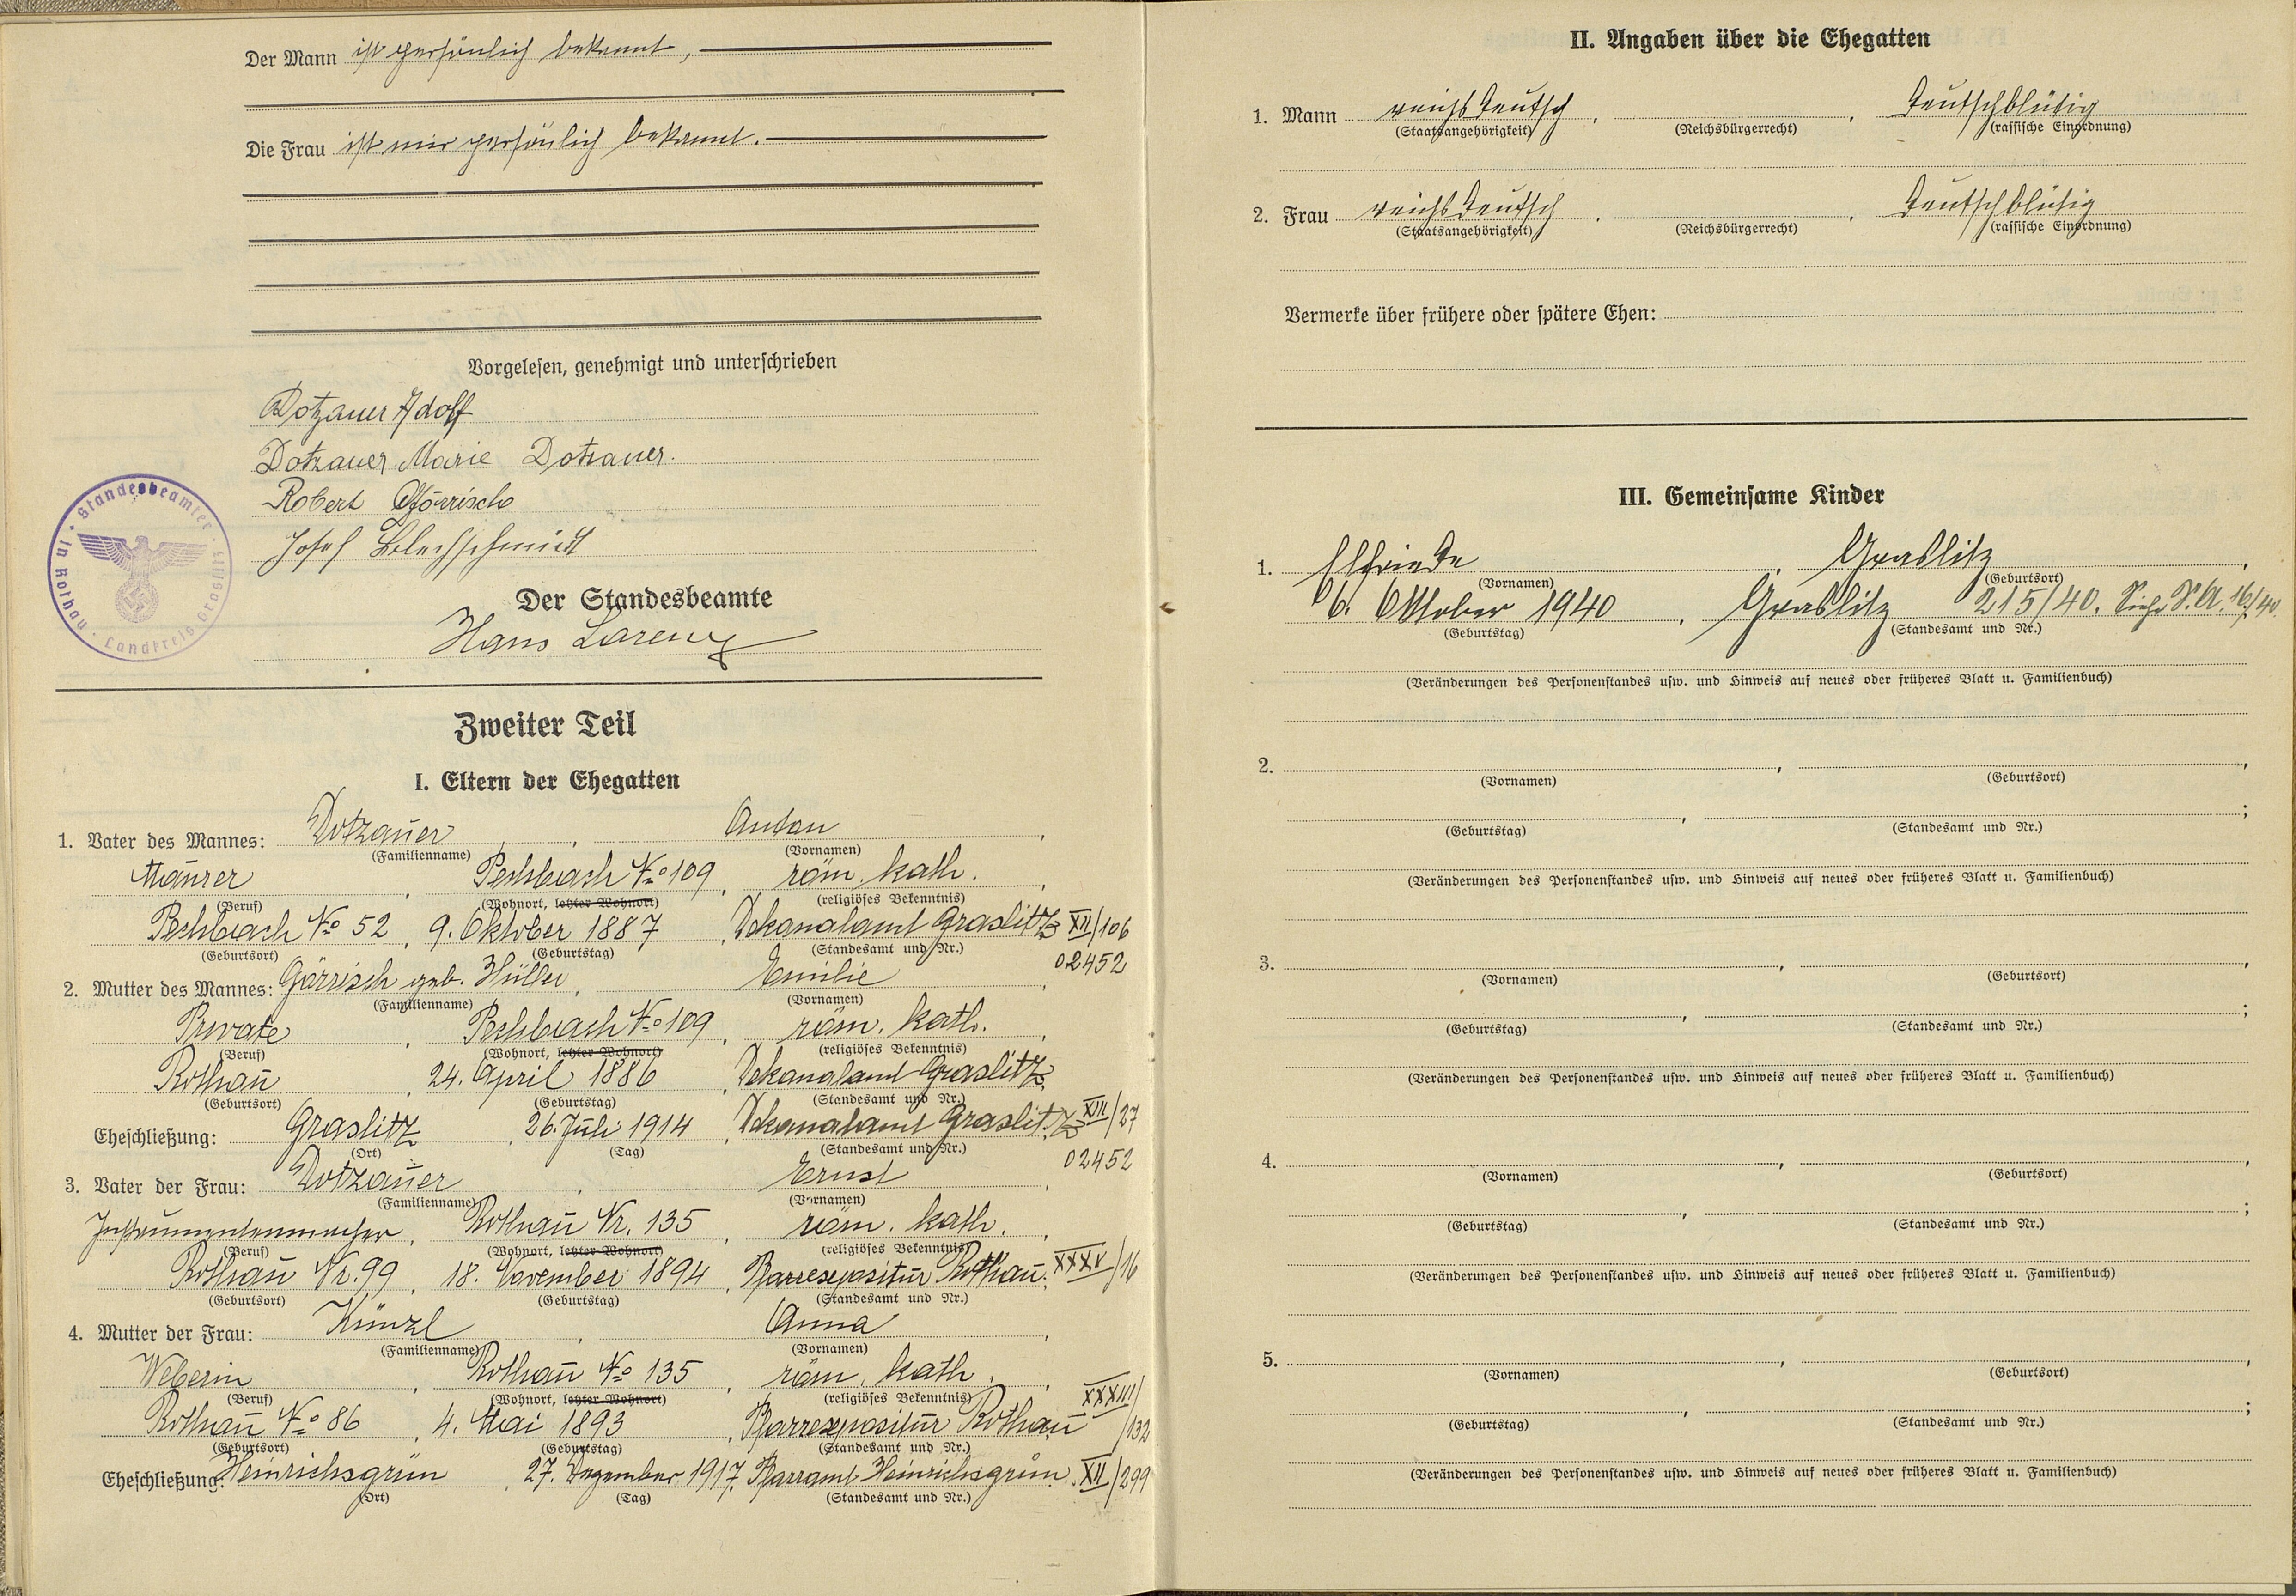 Der Mann ist persönlich bekannt,
Die Frau ist mir persönlich bekannt.
Vorgelesen, genehmigt und unterschrieben
Dotzauer Adolf
Dotzauer Marie Dotzauer.
Robert Görrisch
Josef Blechschmidt
Der Standesbeamte
Hans Lorenz
Standesbeamter in Rothau Landkreis Graslitz
Zweiter Teil
I. Eltern der Ehegatten
1. Vater des Mannes: Dotzauer, Anton,
(Familienname) (Vornamen)
Maurer, Pechbach No 109, röm. kath.,
(Beruf) (Wohnort, letzter Wohnort) (religiöses Bekenntnis)
Pechbach No 52, 9. Oktober 1887, Dekanalamt Graslitz XII/106
(Geburtsort) (Geburtstag) (Standesamt und Nr.)
02452
2. Mutter des Mannes: Görrisch geb. Hüller, Emilie,
(Familienname) (Vornamen)
Private, Pechbach No 109, röm. kath.,
(Beruf) (Wohnort, letzter Wohnort) (religiöses Bekenntnis)
Rothau, 24. April 1886, Dekanalamt Graslitz
(Geburtsort) (Geburtstag) (Standesamt und Nr.)
Eheschließung: Graslitz, 26. Juli 1914, Dekanalamt Graslitz XIII/27
(Ort) (Tag) (Standesamt und Nr.)
02452
3. Vater der Frau: Dotzauer, Ernst,
(Familienname) (Vornamen)
Instrumentenmacher, Rothau Nr. 135, röm. kath.,
(Beruf) (Wohnort, letzter Wohnort) (religiöses Bekenntnis)
Rothau Nr. 99, 18. November 1894, Pfarrexpositur Rothau. XXXV/16
(Geburtsort) (Geburtstag) (Standesamt und Nr.)
4. Mutter der Frau: Künzl, Anna,
(Familienname) (Vornamen)
Weberin, Rothau No 135, röm. kath.,
(Beruf) (Wohnort, letzter Wohnort) (religiöses Bekenntnis)
Rothau No 86, 4. Mai 1893, Pfarrexpositur Rothau XXXIII/132
(Geburtsort) (Geburtstag) (Standesamt und Nr.)
Eheschließung: Heinrichsgrün, 27. Dezember 1917, Pfarramt Heinrichsgrün. XII/299
(Ort) (Tag) (Standesamt und Nr.)
II. Angaben über die Ehegatten
1. Mann reichsdeutsch, , deutschblütig
(Staatsangehörigkeit) (Reichsbürgerrecht) (rassische Einordnung)
2. Frau reichsdeutsch, , deutschblütig
(Staatsangehörigkeit) (Reichsbürgerrecht) (rassische Einordnung)
Vermerke über frühere oder spätere Ehen:
III. Gemeinsame Kinder
1. Elfriede, Graslitz,
(Vornamen) (Geburtsort)
6. Oktober 1940, Graslitz 215/40. Siehe S.A. 16/40.
(Geburtstag) (Standesamt und Nr.)
(Veränderungen des Personenstandes usw. und Hinweis auf neues oder früheres Blatt u. Familienbuch)
2. , ,
(Vornamen) (Geburtsort)
, ;
(Geburtstag) (Standesamt und Nr.)
(Veränderungen des Personenstandes usw. und Hinweis auf neues oder früheres Blatt u. Familienbuch)
3. , ,
(Vornamen) (Geburtsort)
, ;
(Geburtstag) (Standesamt und Nr.)
(Veränderungen des Personenstandes usw. und Hinweis auf neues oder früheres Blatt u. Familienbuch)
4. , ,
(Vornamen) (Geburtsort)
, ;
(Geburtstag) (Standesamt und Nr.)
(Veränderungen des Personenstandes usw. und Hinweis auf neues oder früheres Blatt u. Familienbuch)
5. , ,
(Vornamen) (Geburtsort)
, ;
(Geburtstag) (Standesamt und Nr.)
(Veränderungen des Personenstandes usw. und Hinweis auf neues oder früheres Blatt u. Familienbuch)